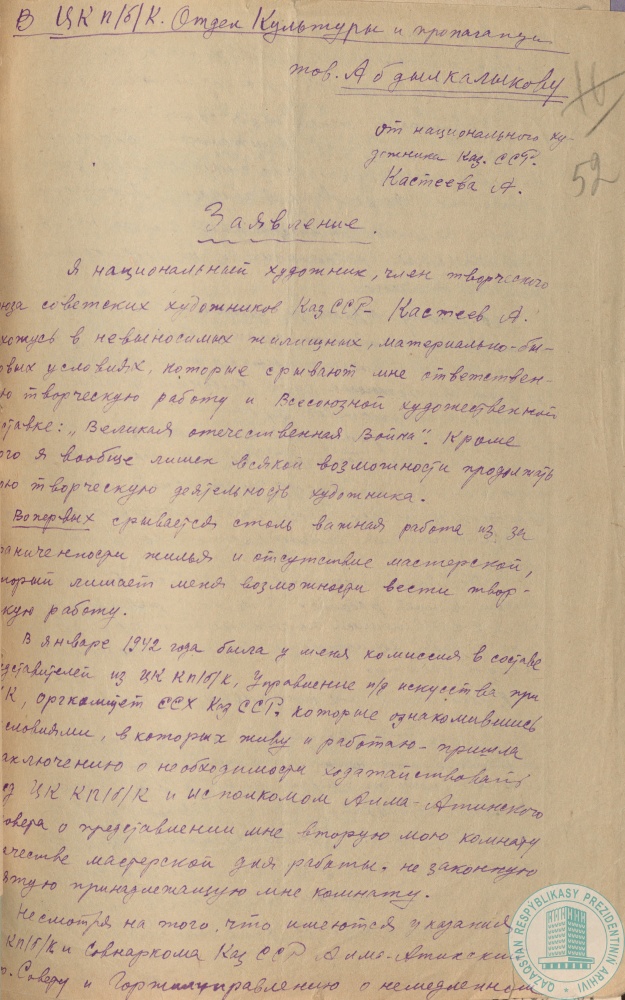 В ЦК П/б/К. Отдел Культуры и пропаганды
тов. Абдылкалыкову
10
52
от национального ху-
дожника Каз. ССР.
Кастеева А.
Заявление.
Я национальный художник, член творческого
юза советских художников КазССР - Кастеев А.
хожусь в невыносимых жилищных, материально-бы-
овых условиях, которые срывают мне ответствен-
ю творческую работу и Всесоюзной художественной
ставке: „Великая отечественная Война". Кроме
ого я вообще лишен всякой возможности продолжать
ою творческую деятельность художника.
Вопервых срывается столь важная работа из за
аниченности жилья и отсутствие мастерской,
торый лишает меня возможности вести твор-
кую работу.
В январе 1942 года была у меня комиссия в составе
дставителей из ЦК КП/б/К, Управление п/д искусства при
К, оргкомитет ССХ КазССР. которые ознакомившись
словиями, в которых живу и работаю - пришла
аключению о необходимости ходатайствовать
ед ЦК КП/б/К и исполкомом Алма-Атинского
овета о представлении мне вторую мою комнату
ачестве мастерской для работы. не законную
ятую принадлежащую мне комнату.
Несмотря на того, что имеются указания
КП/б/К и Совнаркома Каз ССР Алма-Атинский
о. Совету и Горжилуправлению о немедленном
QAZAQSTAN RESPÝBLIKASY PREZIDENTINIŃ ARHIVI